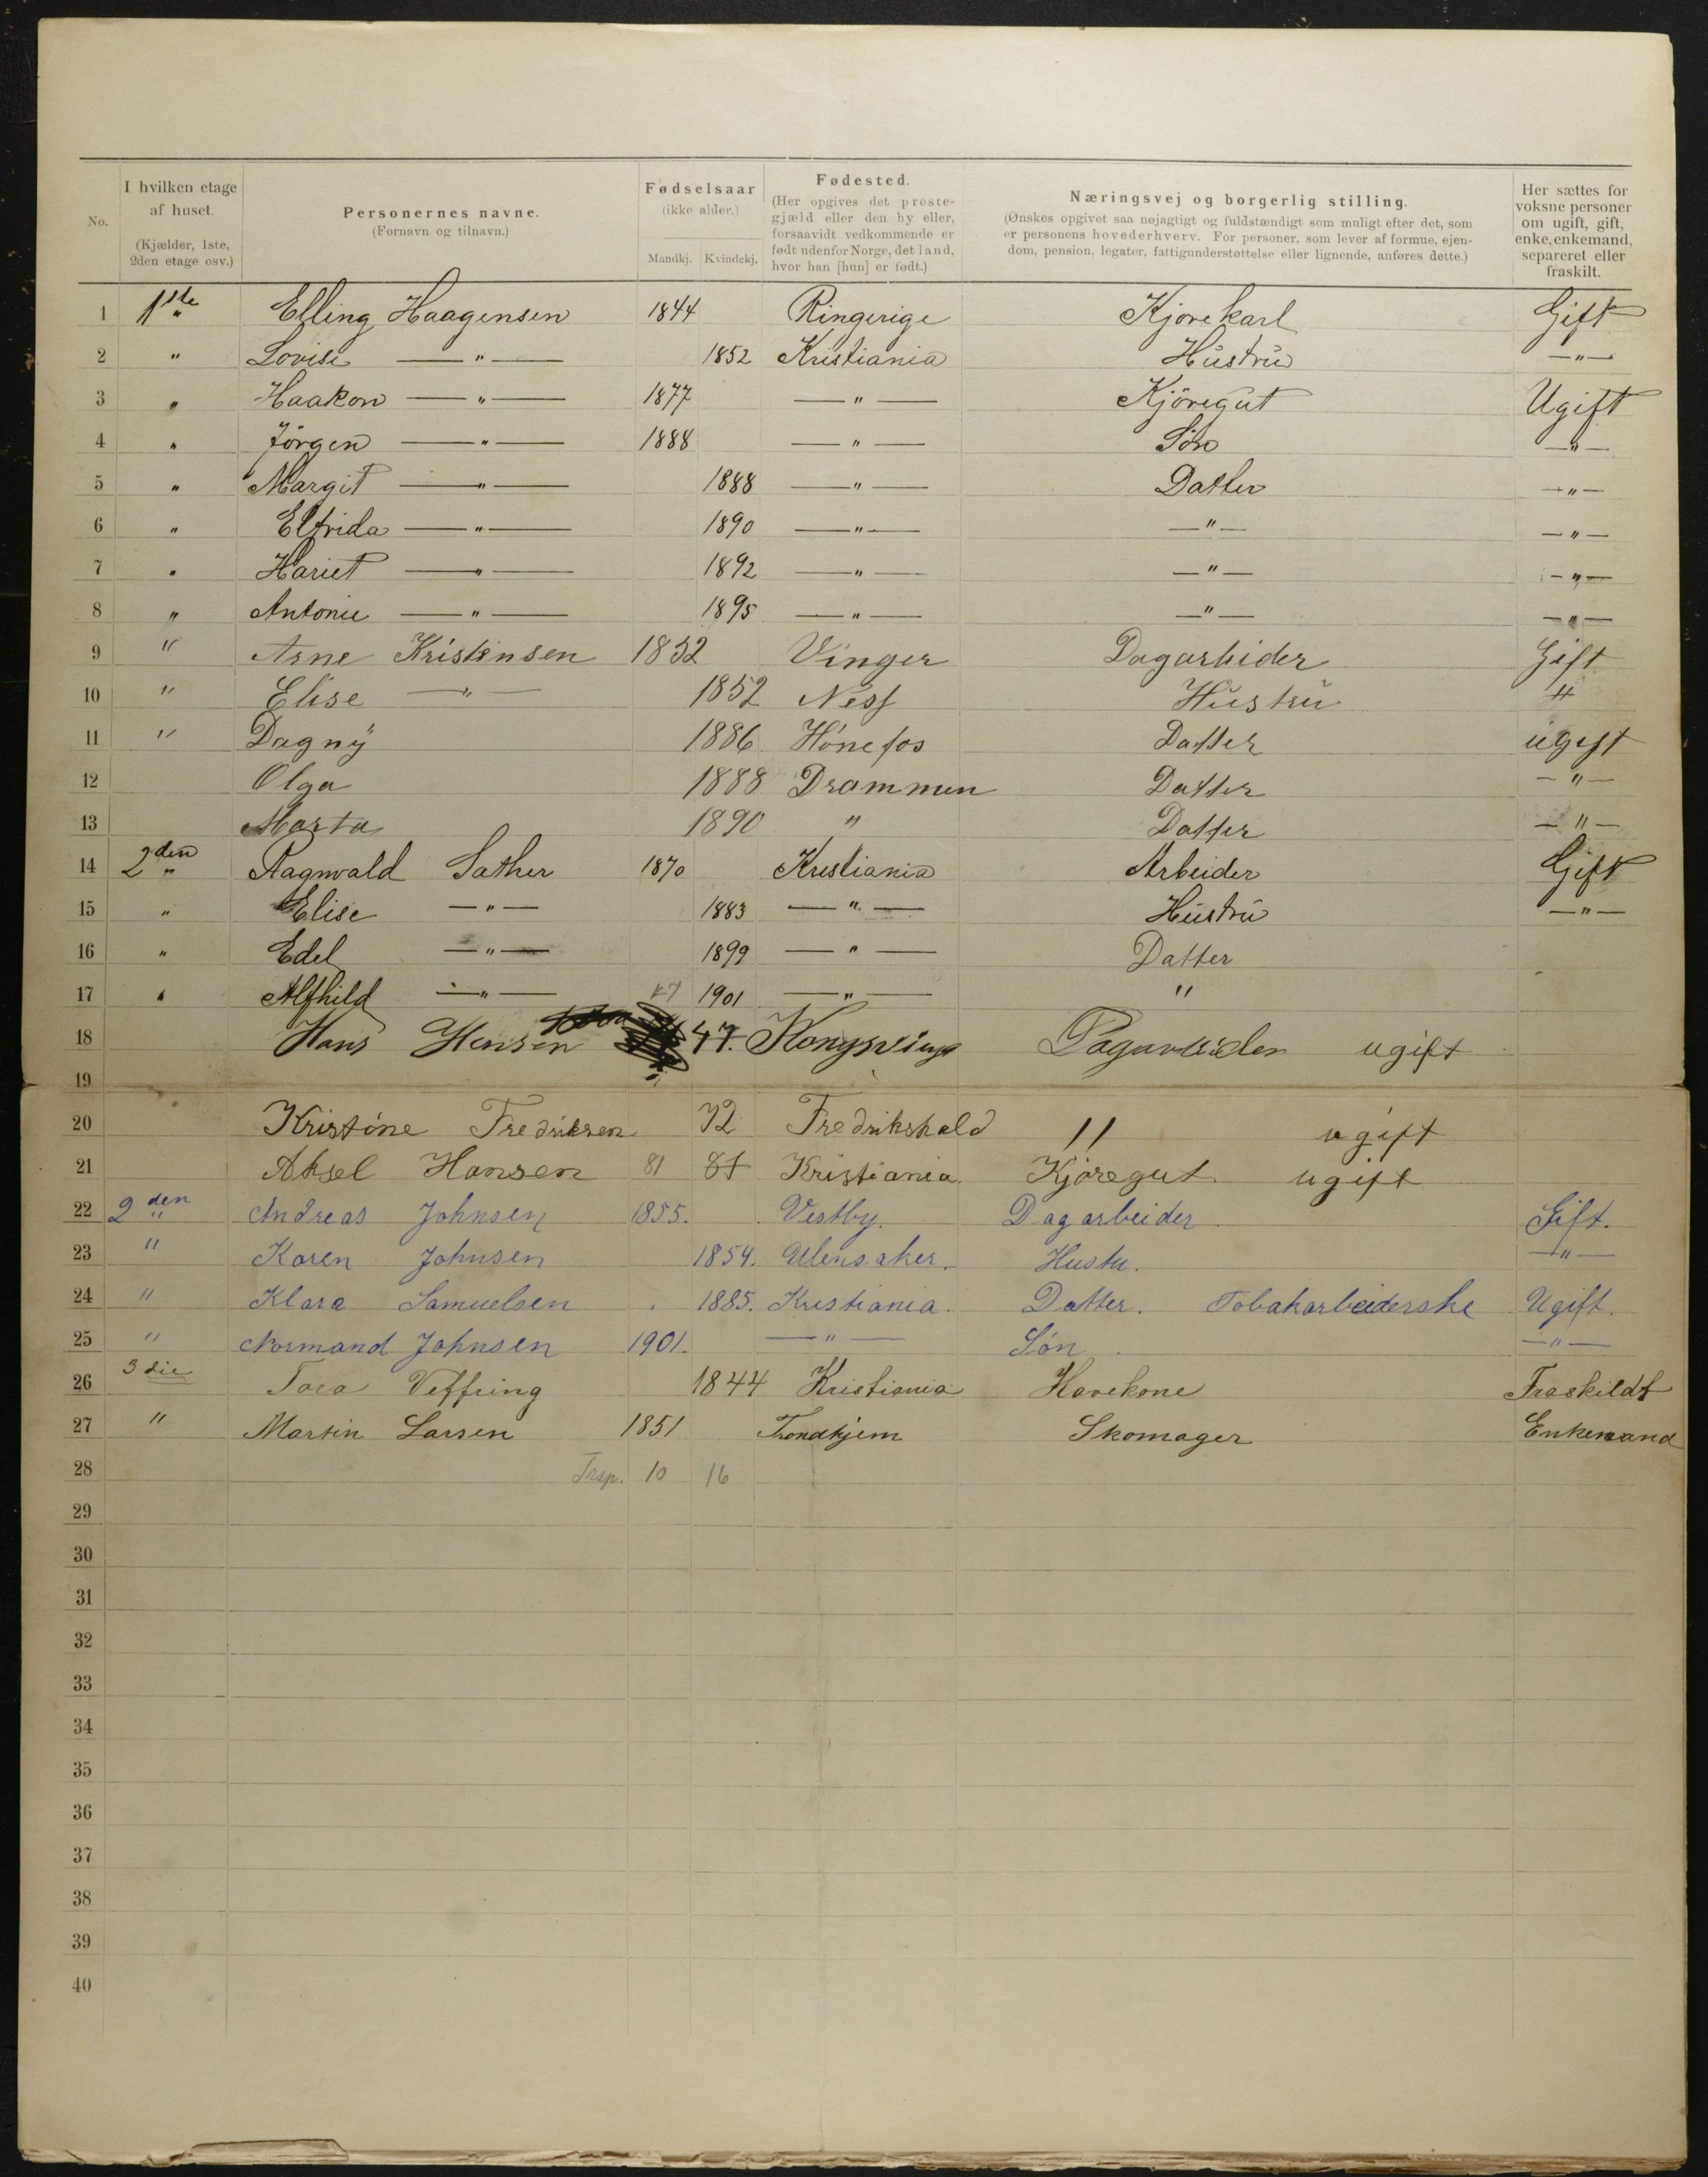 No. I hvilken etage af huset. (Kjælder, 1ste, 2den etage osv.) Personernes navne. (Fornavn og tilnavn.) Fødselsaar (ikke alder.) Mandkj. Kvindekj. Fødested. (Her opgives det prestegjæld eller den by eller, forsaavidt vedkommende er født udenfor Norge, det land, hvor han [hun] er født.) Næringsvej og borgerlig stilling. (Ønskes opgivet saa nøjagtigt og fuldstændigt som muligt efter det, som er personens hovederhverv. For personer, som lever af formue, ejendom, pension, legater, fattigunderstøttelse eller lignende, anføres dette.) Her sættes for voksne personer om ugift, gift, enke, enkemand, separeret eller fraskilt.
1 1ste " Elling Haagensen 1844 Ringerige Kjørekarl Gift
2 " Lovise —"— 1852 Kristiania Hustru —"—
3 " Haakon —"— 1877 —"— Kjöregut Ugift
4 " Jörgen —"— 1888 —"— Sön —"—
5 " Margit —"— 1888 —"— Datter —"—
6 " Elfrida —"— 1890 —"— —"— —"—
7 " Hariet —"— 1892 —"— —"— —"—
8 " Antonie —"— 1895 —"— —"— —"—
9 " Arne Kristensen 1852 Vinger Dagarbeider Gift
10 " Elise —"— 1852 Ness Hustru "
11 " Dagny 1886 Hónefos Datter ugift
12 Olga 1888 Drammen Datter —"—
13 Marta 1890 " Datter —"—
14 2den " Ragnvald Sather 1870 Kristiania Arbeider Gift
15 " Elise —"— 1883 —"— Hustru —"—
16 " Edel —"— 1899 —"— Datter
17 " Alfhild —"— 47 1901 —"— "
18 Hans Hensen 47. Kongsvinge Dagarbeider ugift
19
20 Kristine Fredriksen 72 Fredrikshald " ugift
21 Aksel Hansen 81 81 Kristiania. Kjøregut. ugift
22 2den " Andreas Johnsen 1855. Vestby. Dagarbeider. Gift.
23 " Karen Johnsen 1854. Ulensaker. Hustu. —"—
24 " Klara Samuelsen 1885. Kristiania. Datter. Tobakarbeiderske Ugift.
25 " Normand Johnsen 1901. —"— Søn. —"—
26 3die Tora Veffring 1844 Kristiania Havekone Fraskildt
27 " Martin Larsen 1851 Trondhjem Skomager Enkemand
28 Trsp. 10 16
29
30
31
32
33
34
35
36
37
38
39
40